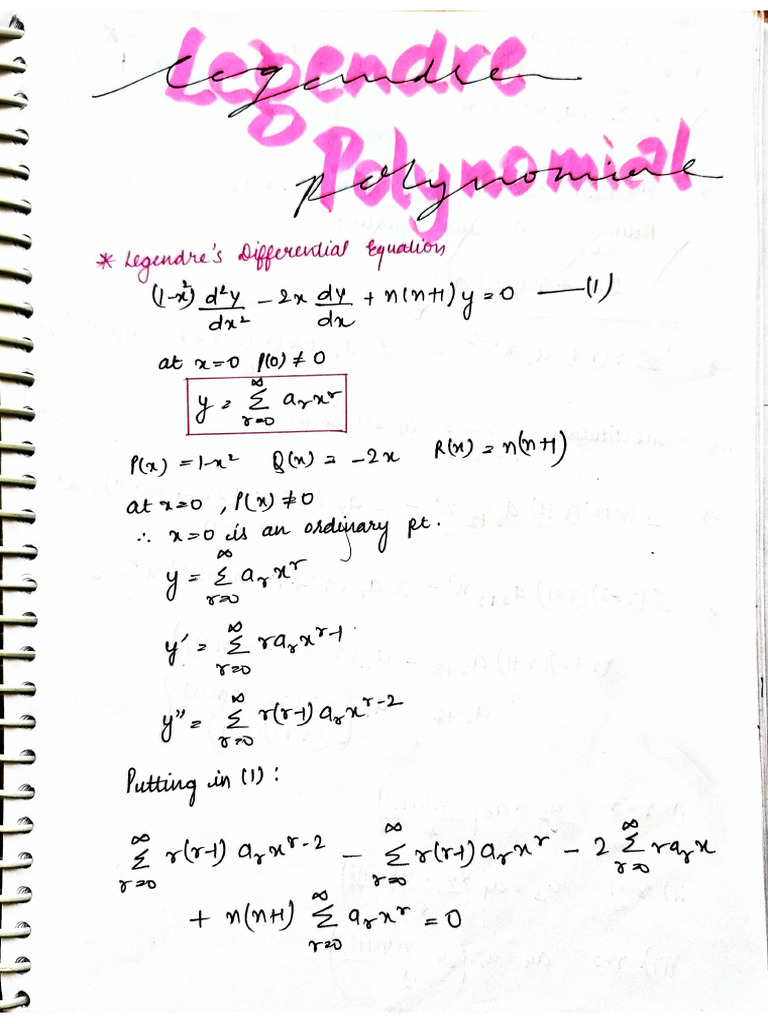 Legendre
Polynomial
* Legendre's Differential Equation
(1-x²) d²y/dx² - 2x dy/dx + n(n+1) y = 0 —(1)
at x=0 P(0) ≠ 0
y = Σ_{r=0}^{∞} a_r x^r
P(x) = 1-x² Q(x) = -2x R(x) = n(n+1)
at x=0, P(x) ≠ 0
∴ x=0 is an ordinary pt.
y = Σ_{r=0}^{∞} a_r x^r
y' = Σ_{r=0}^{∞} r a_r x^{r-1}
y'' = Σ_{r=0}^{∞} r(r-1) a_r x^{r-2}
Putting in (1):
Σ_{r=0}^{∞} r(r-1) a_r x^{r-2} - Σ_{r=0}^{∞} r(r-1) a_r x^r - 2 Σ_{r=0}^{∞} r a_r x
+ n(n+1) Σ_{r=0}^{∞} a_r x^r = 0